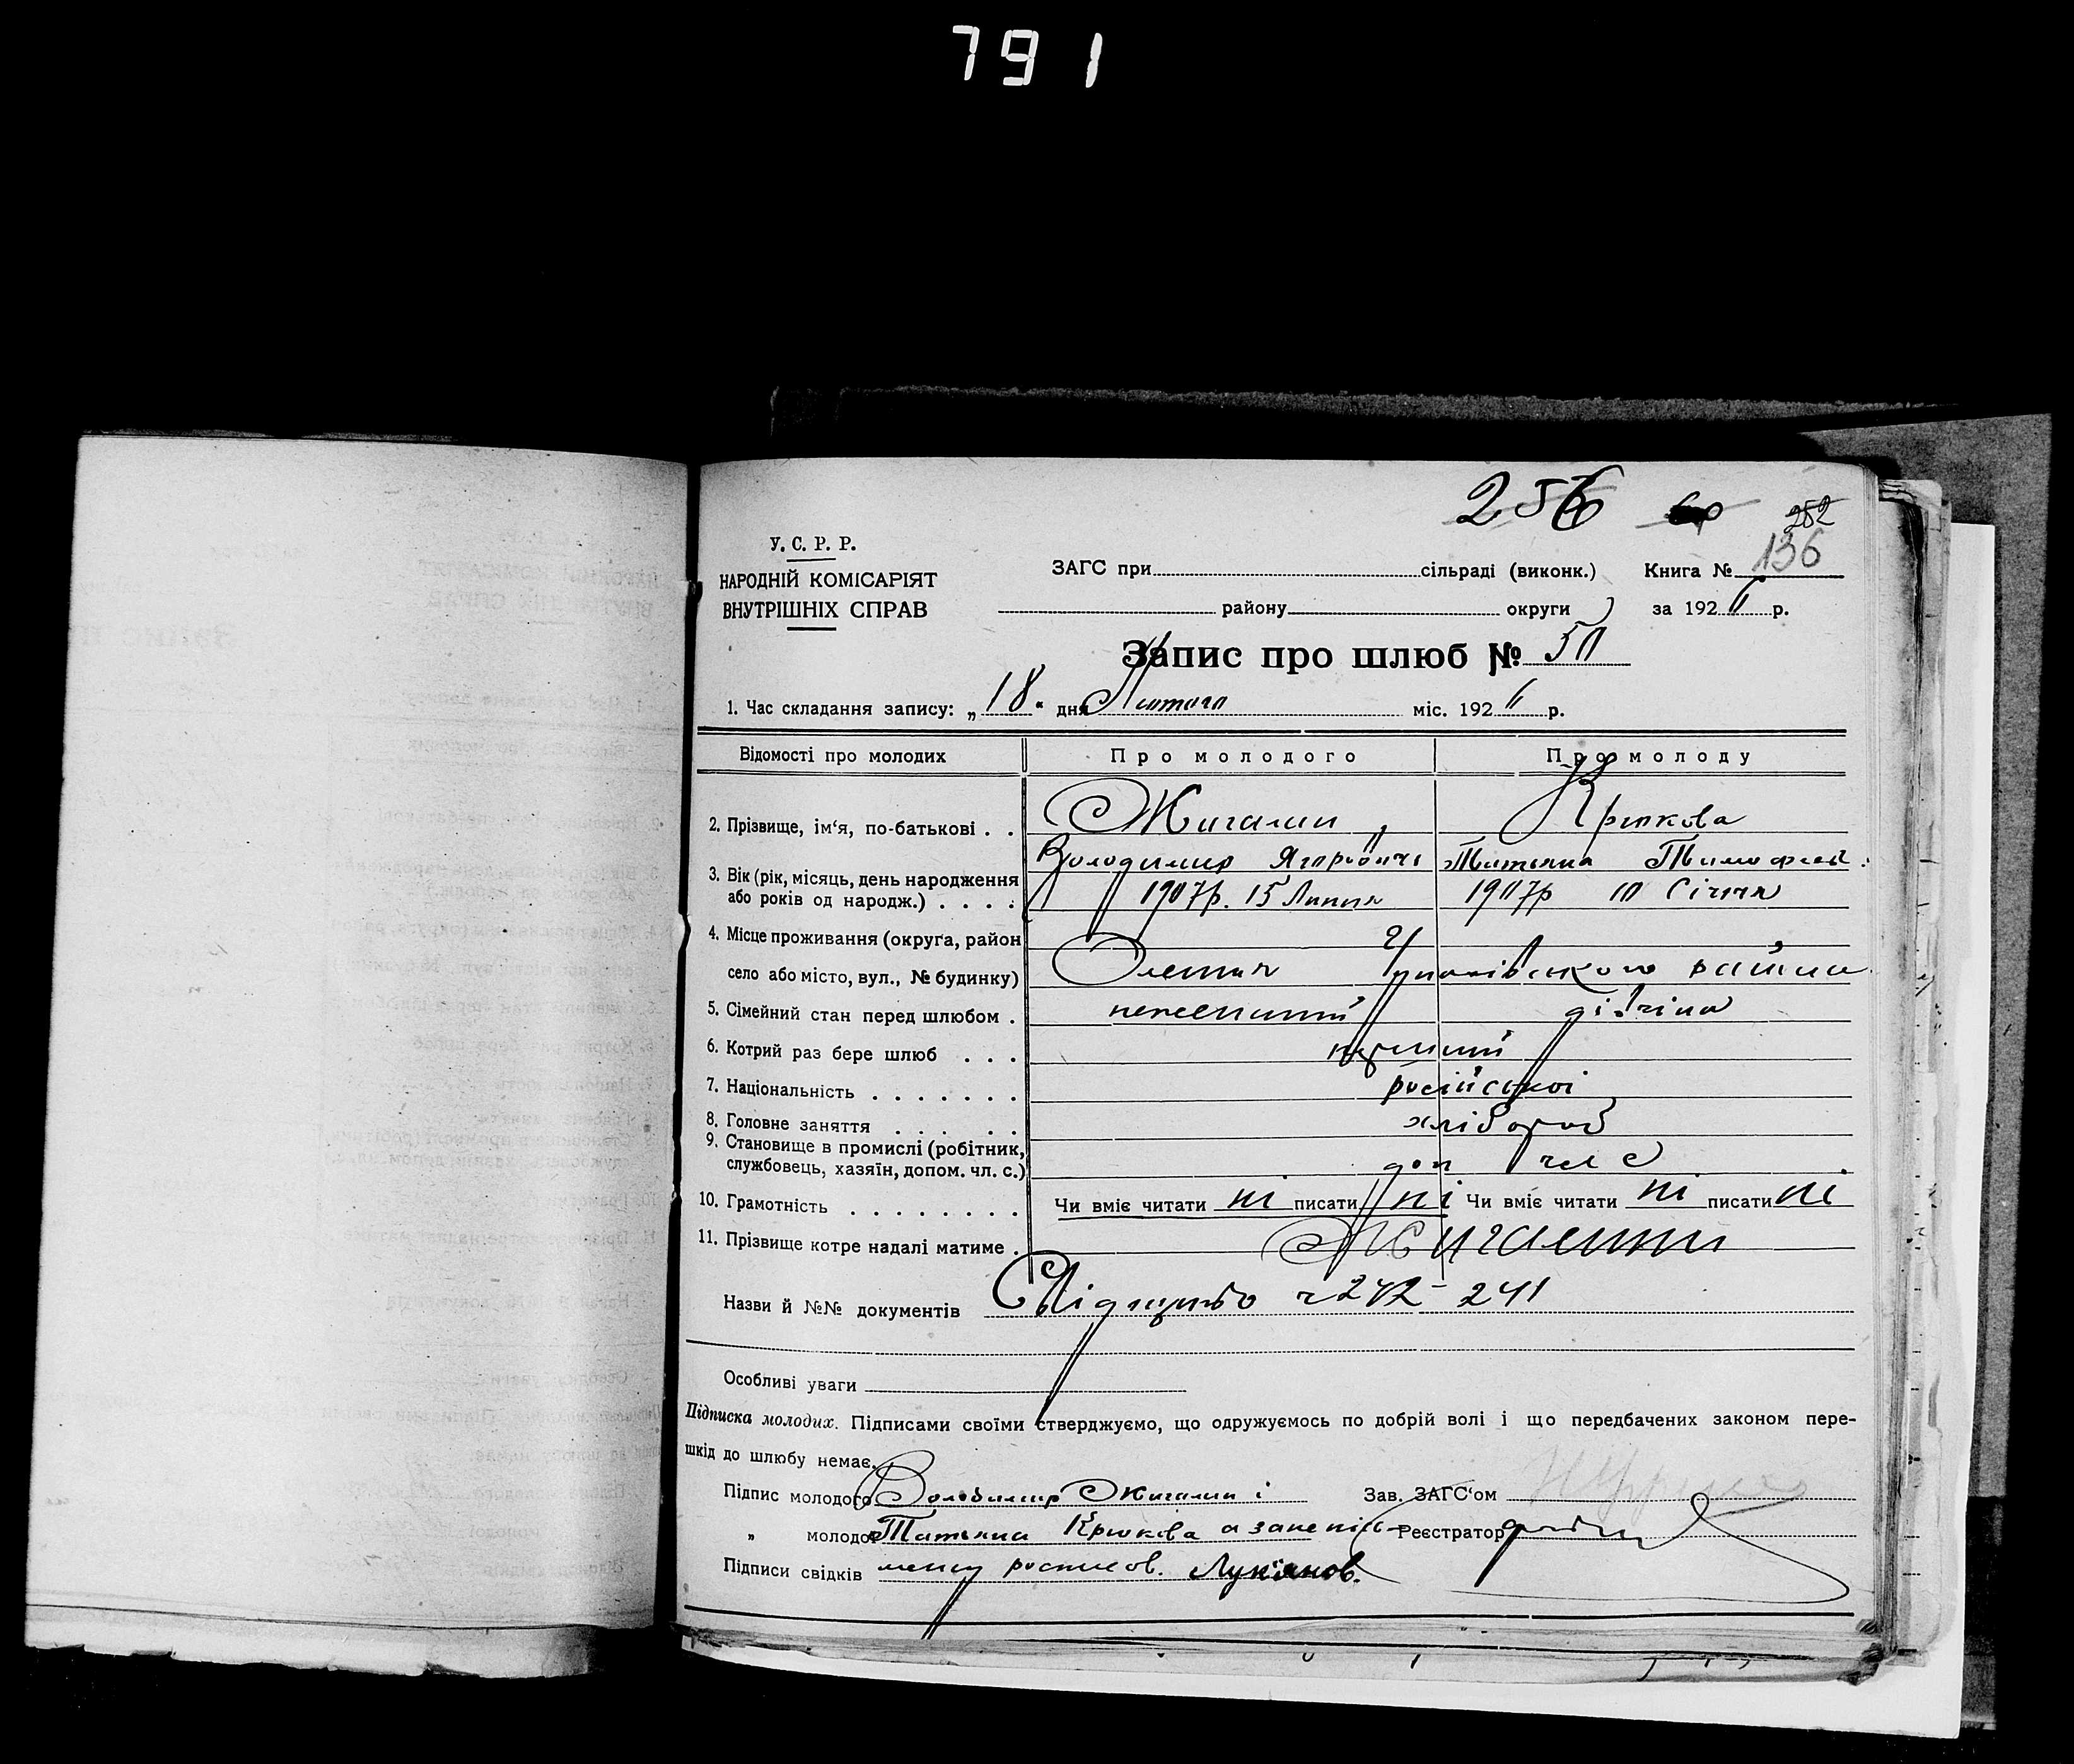 791
256 252
У. С. Р. Р.
НАРОДНІЙ КОМІСАРІЯТ
ВНУТРІШНІХ СПРАВ
ЗАГС при сільраді (виконк.) Книга № 136
району округи за 192 р.
Запис про шлюб № 50
1. Час складання запису: „18“ дня Лютого міс. 192 р.
Відомості про молодих Про молодого Про молоду
2. Прізвище, ім‘я, по-батькові . . Жигалин Крюкова
Володимир Татьяна Тимофеев.
3. Вік (рік, місяць, день народження
або років од народж.) . . . . 1907р. 15 Липня 1907р 10 Січня
4. Місце проживання (округа, район
село або місто, вул., № будинку) района
5. Сімейний стан перед шлюбом . нежепатий дівчина
6. Котрий раз бере шлюб . . . перший
7. Національність . . . . . . . російської
8. Головне заняття . . . . . хлібороб
9. Становище в промислі (робітник,
службовець, хазяїн, допом. чл. с.) доп чл с
10. Грамотність . . . . . . . . Чи вміє читати ні писати ні Чи вміє читати ні писати ні
11. Прізвище котре надалі матиме . Жигалини
Назви й №№ документів 242-241
Особливі уваги
Підписка молодих. Підписами своїми стверджуємо, що одружуємось по добрій волі і що передбачених законом пере-
шкід до шлюбу немає.
Підпис молодого Володимир Жигалин і Зав. ЗАГС‘ом
„ молодої Татьяна Крюкова а за Реєстратор
Підписи свідків росписов. Лукянов.